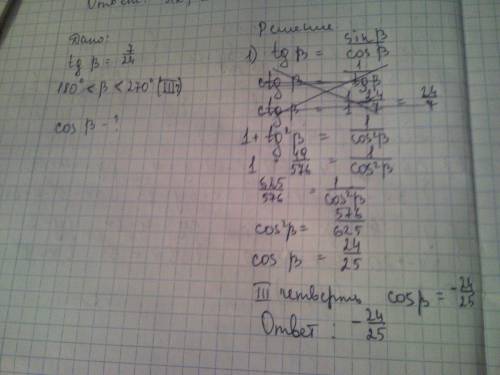 Ответ:
Дано:
tg β = 7/24
180° < β < 270° (III)
cos β - ?
Решение
1) tg β = sin β / cos β
ctg β = 1 / tg β
ctg β = 1 · 24/7 = 24/7
1 + tg²β = 1 / cos²β
1 + 49/576 = 1 / cos²β
625/576 = 1 / cos²β
cos²β = 576/625
cos β = 24/25
III четверть cos β = -24/25
Ответ: -24/25